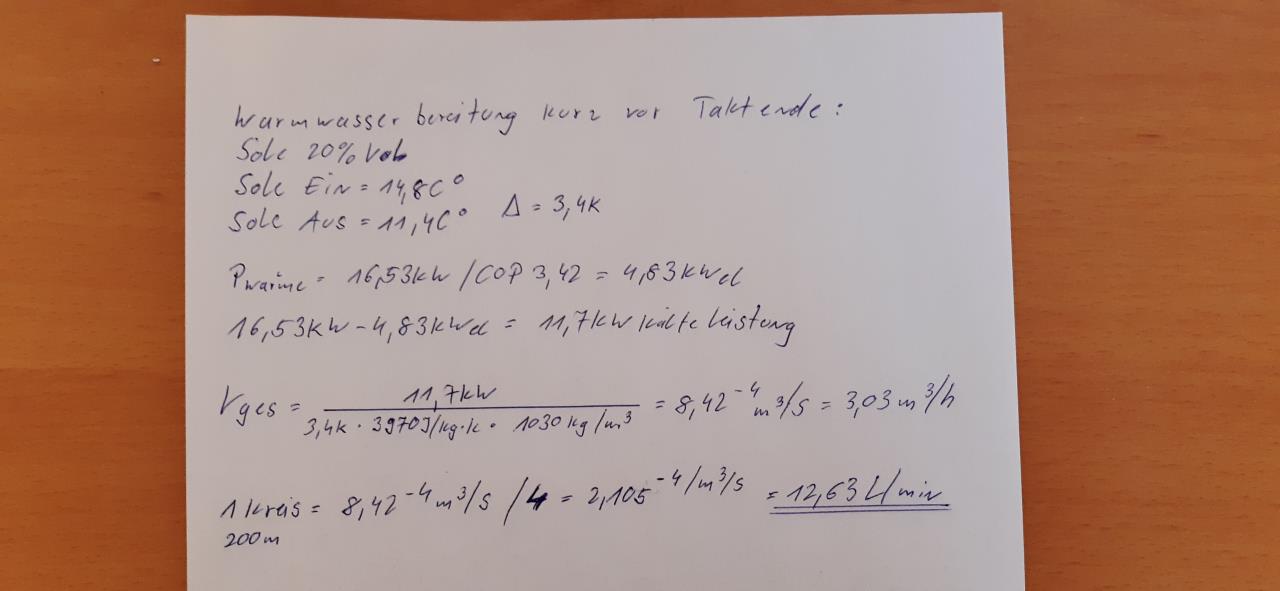 Warmwasser bereitung kurz vor Taktende:
Sole 20% Vol
Sole Ein = 14,8C°
Sole Aus = 11,4C° Δ = 3,4K
Pwärme = 16,53kW / COP 3,42 = 4,83kWel
16,53kW - 4,83kWel = 11,7kW kälte leistung
Vges = 11,7kW / 3,4K · 3970J/kg·K · 1030 kg/m³ = 8,42⁻⁴ m³/s = 3,03 m³/h
1 Kreis = 8,42⁻⁴ m³/s / 4 = 2,105⁻⁴/m³/s = 12,63 L/min
200m